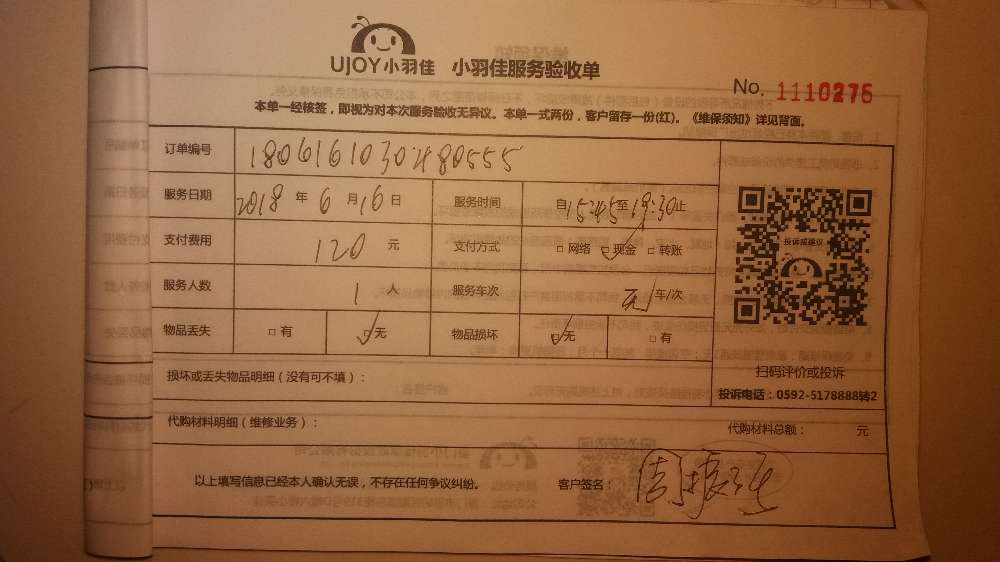 UJOY小羽佳 小羽佳服务验收单
No. 1110276
本单一经核签，即视为对本次服务验收无异议。本单一式两份，客户留存一份(红)。《维保须知》详见背面。
订单编号 1806161030480555
服务日期 2018 年 6 月 16 日 服务时间 自 15:45 至 19:30 止
支付费用 120 元 支付方式 □ 网络 ☑ 现金 □ 转账
服务人数 1 人 服务车次 无 车/次
物品丢失 □ 有 ☑ 无 物品损坏 ☑ 无 □ 有
投诉或建议
扫码评价或投诉
投诉电话：0592-5178888转2
损坏或丢失物品明细（没有可不填）：
代购材料明细（维修业务）： 代购材料总额： 元
以上填写信息已经本人确认无误，不存在任何争议纠纷。 客户签名：